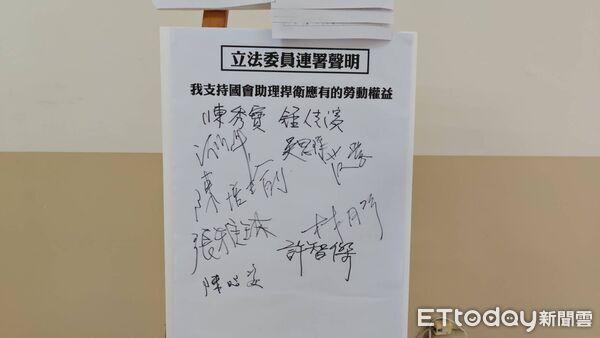 立法委員連署聲明
我支持國會助理捍衛應有的勞動權益
陳秀寳 鍾佳濱
陳培瑜
張雅琳 林月琴
許智傑
ETtoday新聞雲